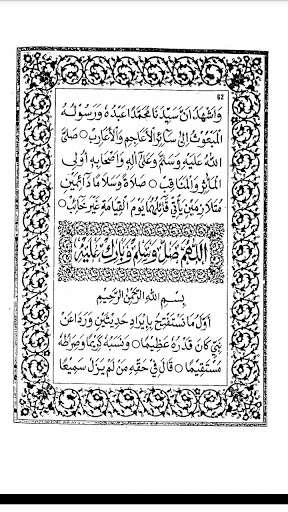 62
وَاَشْهَدُ اَنَّ سَيِّدَنَا مُحَمَّدًا عَبْدُهُ وَرَسُولُهُ
الْمَبْعُوْثُ اِلٰى سَائِرِ الْاَعَاجِمِ وَالْاَعَارِبْ ○ صَلَّى
اللهُ عَلَيْهِ وَسَلَّمَ وَعَلٰى اٰلِهِ وَاَصْحَابِهِ اُولِى
الْمَاٰثِرِ وَالْمَنَاقِبْ ○ صَلَاةً وَسَلَامًا دَائِمَيْنِ
مُتَلَازِمَيْنِ يَأْتِى قَائِلُهُمَا يَوْمَ الْقِيَامَةِ غَيْرَ خَائِبْ ○
اَللّٰهُمَّ صَلِّ وَسَلِّمْ وَبَارِكْ عَلَيْهِ
بِسْمِ اللهِ الرَّحْمٰنِ الرَّحِيْمِ
اَوَّلُ مَا نَسْتَفْتِحُ بِاِيْرَادِ حَدِيْثَيْنِ وَرَدَا عَنْ
نَبِيٍّ كَانَ قَدْرُهُ عَظِيْمًا ○ وَنَسَبُهُ كَرِيْمًا وَصِرَاطُهُ
مُسْتَقِيْمًا ○ قَالَ فِى حَقِّهِ مَنْ لَمْ يَزَلْ سَمِيْعًا